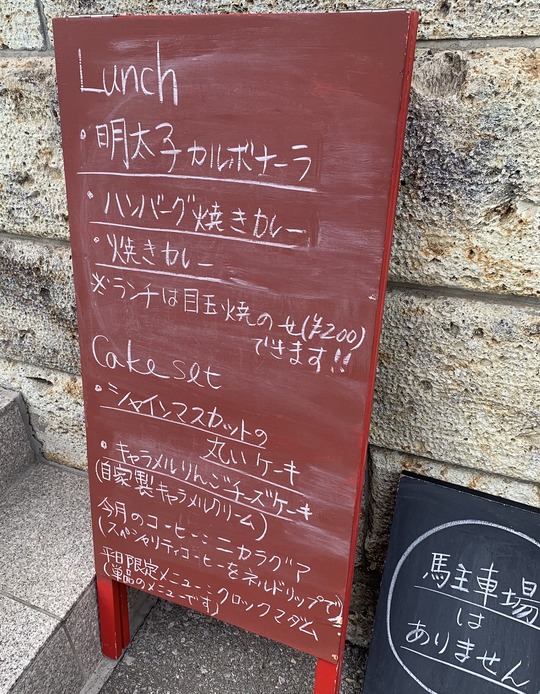 Lunch
・明太子カルボナーラ
・ハンバーグ焼きカレー
・焼きカレー
※ランチは目玉焼のせ(¥200)
できます!!
Cake set
・シャインマスカットの
丸いケーキ
・キャラメルりんごチーズケーキ
(自家製キャラメルクリーム)
今月のコーヒー:ニカラグア
(スペシャリティコーヒーをネルドリップで)
平日限定メニュー:クロックマダム
(単品のメニューです)
駐車場
は
ありません